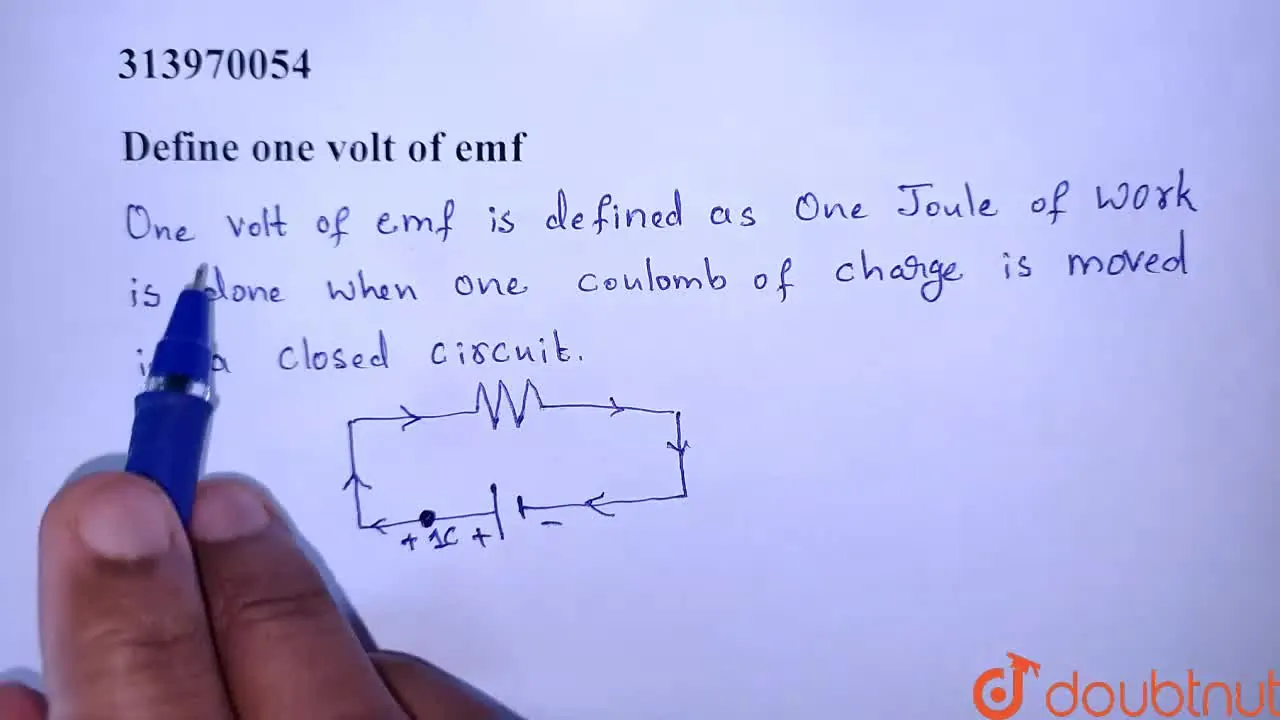 313970054
Define one volt of emf
One volt of emf is defined as One Joule of work
is done when one coulomb of charge is moved
a closed circuit.
+ 1C + −
doubtnut